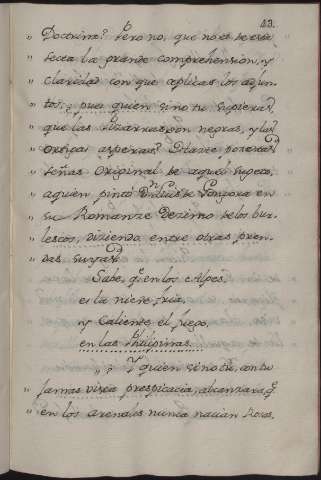 43.
" Doctrina? Pero no, que no es de esta
" secta la grande comprehension, y
" claridad con que aplicas los adjun-
" tos; pues quien sino tu supieras,
" que las Pizarras son negras, y las
" Ortigas asperas?
" señas Original de aquel sugeto,
" a quien pintó Dn. Luis de Gongora en
" su Romanze Dezimo de los bur-
" lescos, diziendo entre otras pren-
" das suyas
Sabe, q. en los Alpes,
es la nieve fria,
y Caliente el fuego,
en las Philipinas.
" " Y quien sino tu, con tu
" jamas vista prespicacia, alcanzara, q.
" en los arenales nunca nacian Rosas,